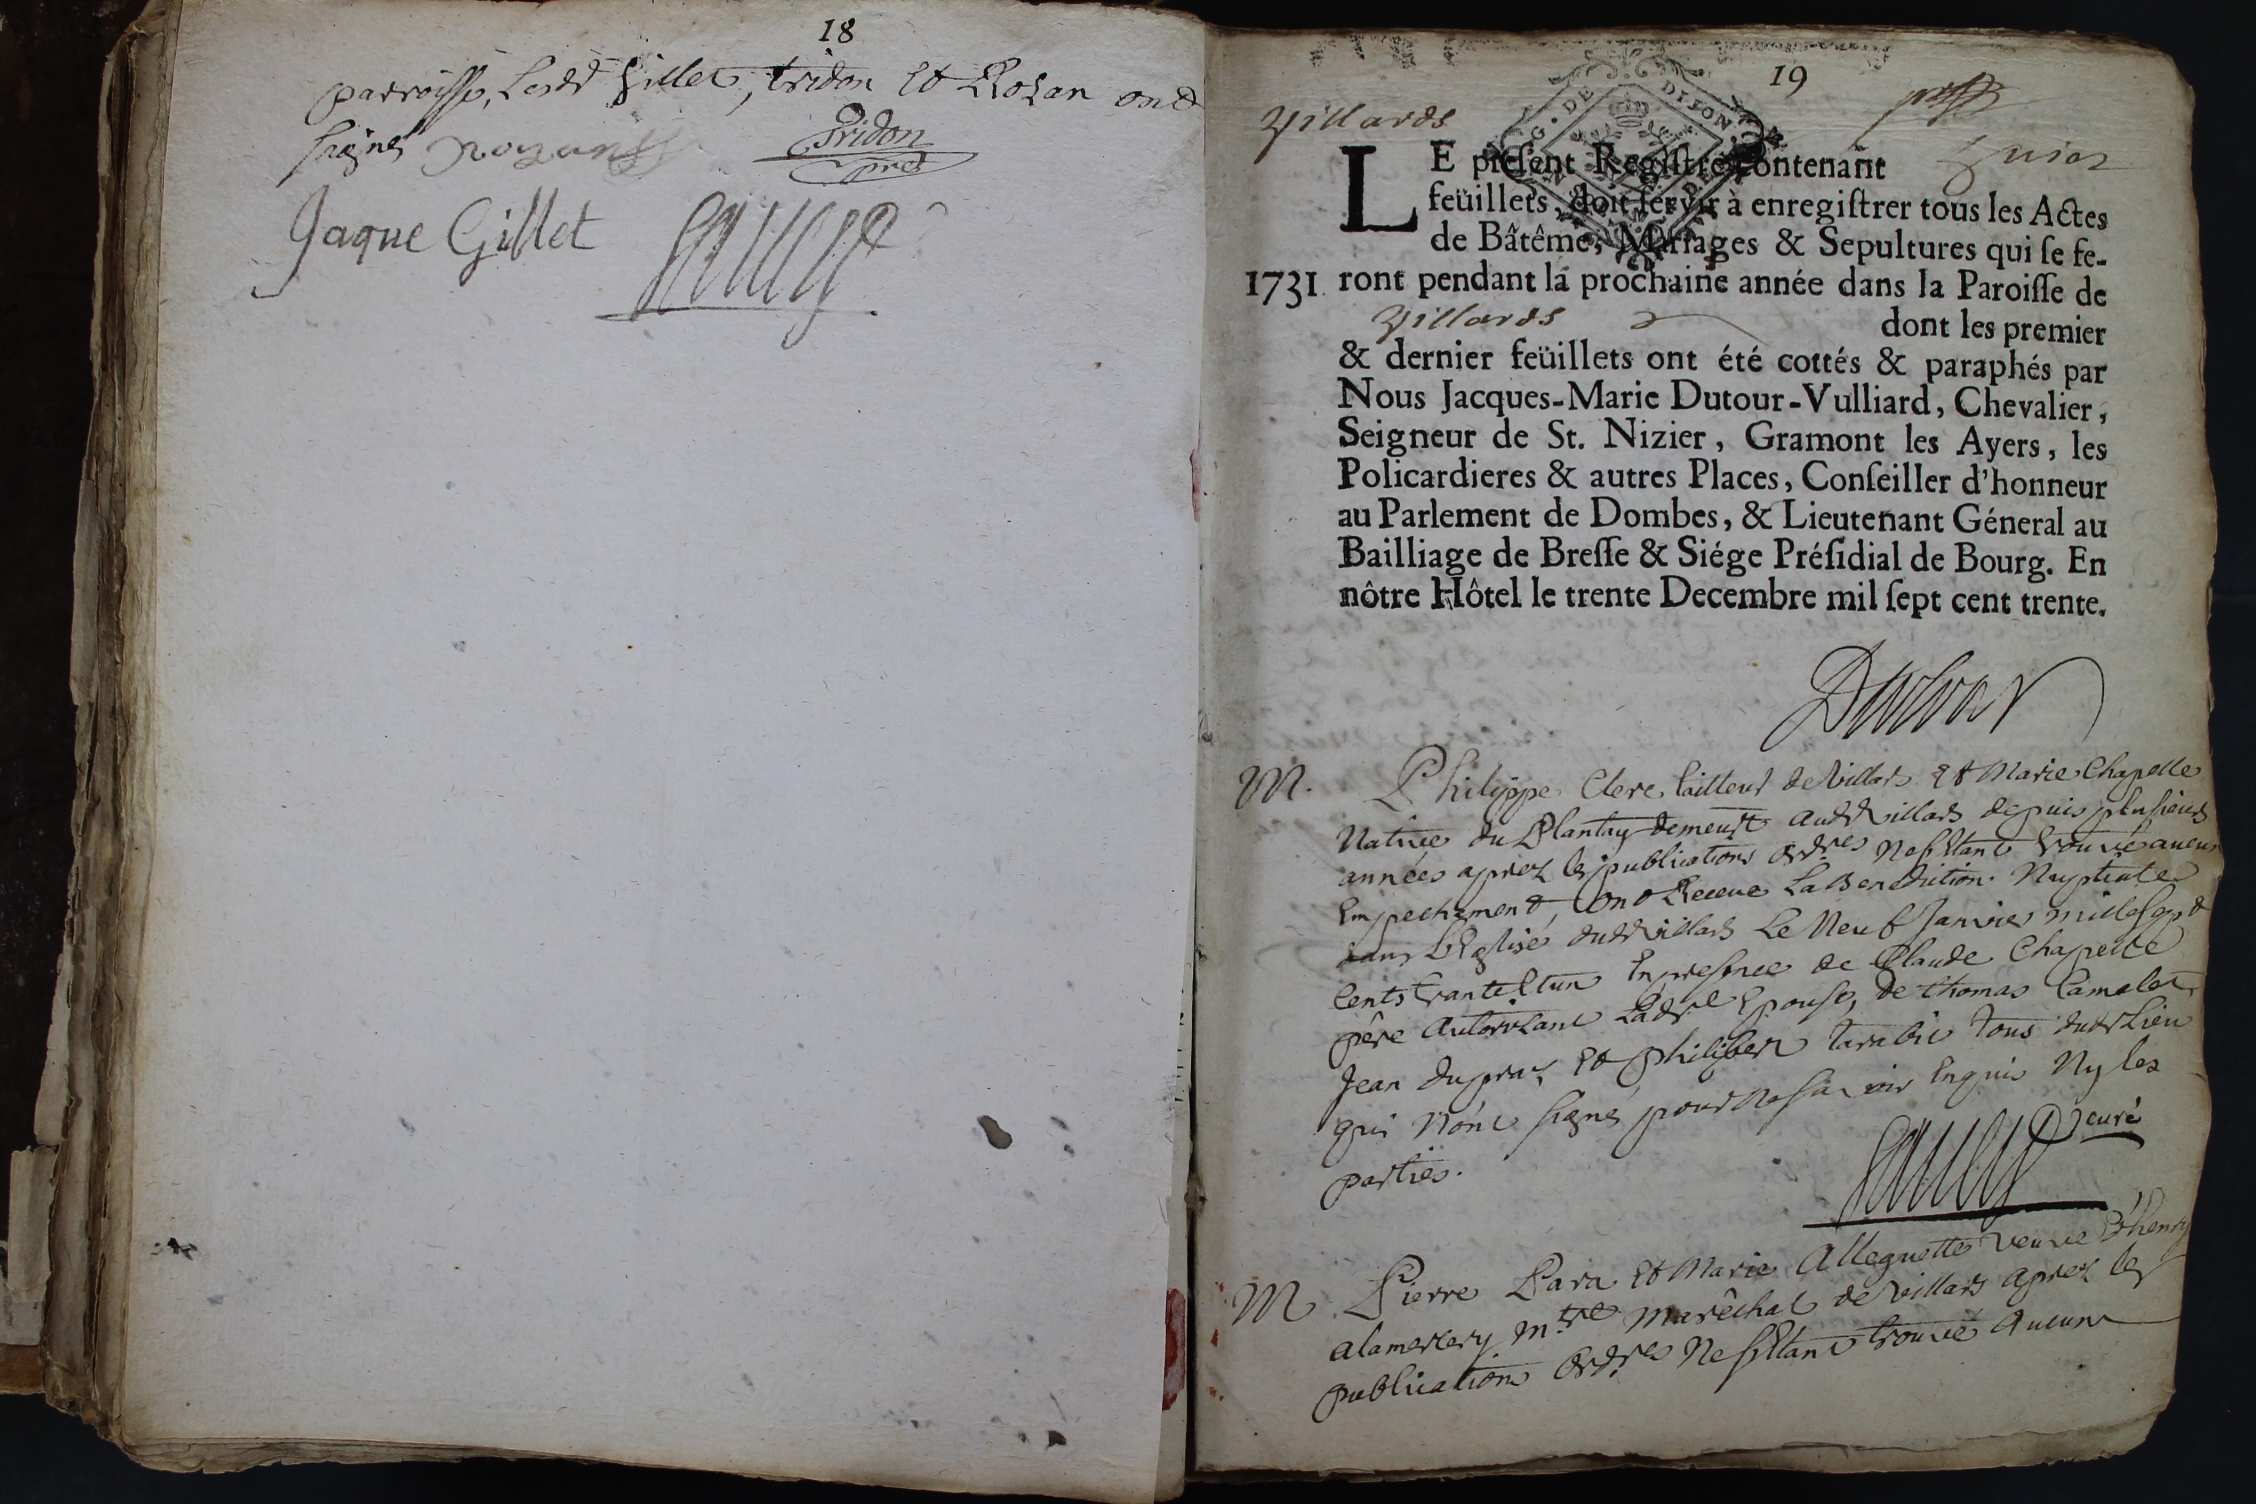 18
parroisse, Lesdt Gillet, tridon Et Rozan ont
signé
Tridon
pret
Jaque Gillet
19
Villards
G. DE DIJON
LE preſent Regiſtre contenant
feüillets, doit ſervir à enregiſtrer tous les Actes
de Bâtême, Mariages & Sepultures qui ſe fe-
1731 ront pendant la prochaine année dans la Paroiſſe de
Villards dont les premier
& dernier feüillets ont été cottés & paraphés par
Nous Jacques-Marie Dutour-Vulliard, Chevalier,
Seigneur de St. Nizier, Gramont les Ayers, les
Policardieres & autres Places, Conſeiller d'honneur
au Parlement de Dombes, & Lieutenant Géneral au
Bailliage de Breſſe & Siége Préſidial de Bourg. En
nôtre Hôtel le trente Decembre mil ſept cent trente.
M. Philippe Clerc tailleur de Villars Et Marie Chapelle
Native du Plantay demeurt audt Villars depuis plusieurs
années aprez les publications Ordres Nesestant trouvé aucun
Empechement, ont Receue La Benediction Nuptiale
dans L'Eglise dudt Villars Le Neuf Janvier mille sept
Cents trante Etun En presence de Claude Chapelle
pêre Autorizant Ladte Epouse, de thomas Camelet
Jean dupraz, Et philibert tarabie tous dudt Lieu
qui N'ont signé pour Ne savoir Enquis Ny les
parties.
curé
M Pierre Para Et Marie Alleguette veuve d'henry
alamercery mtre Maréchal de Villars aprez les
publications Ordres Nesestant trouvé Aucun